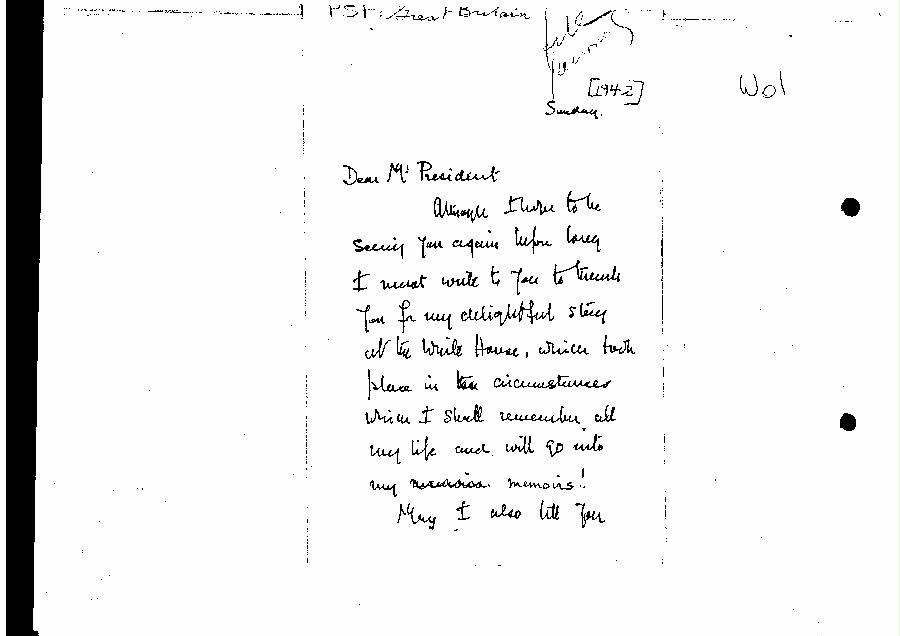 PSF: Great Britain
file
[1942]
Wol
Sunday.
Dear Mr President
Although I hope to be
seeing you again before long
I must write to you to thank
you for my delightful stay
at the White House, which took
place in circumstances
which I shall remember all
my life and will go into
my memoirs!
May I also tell you